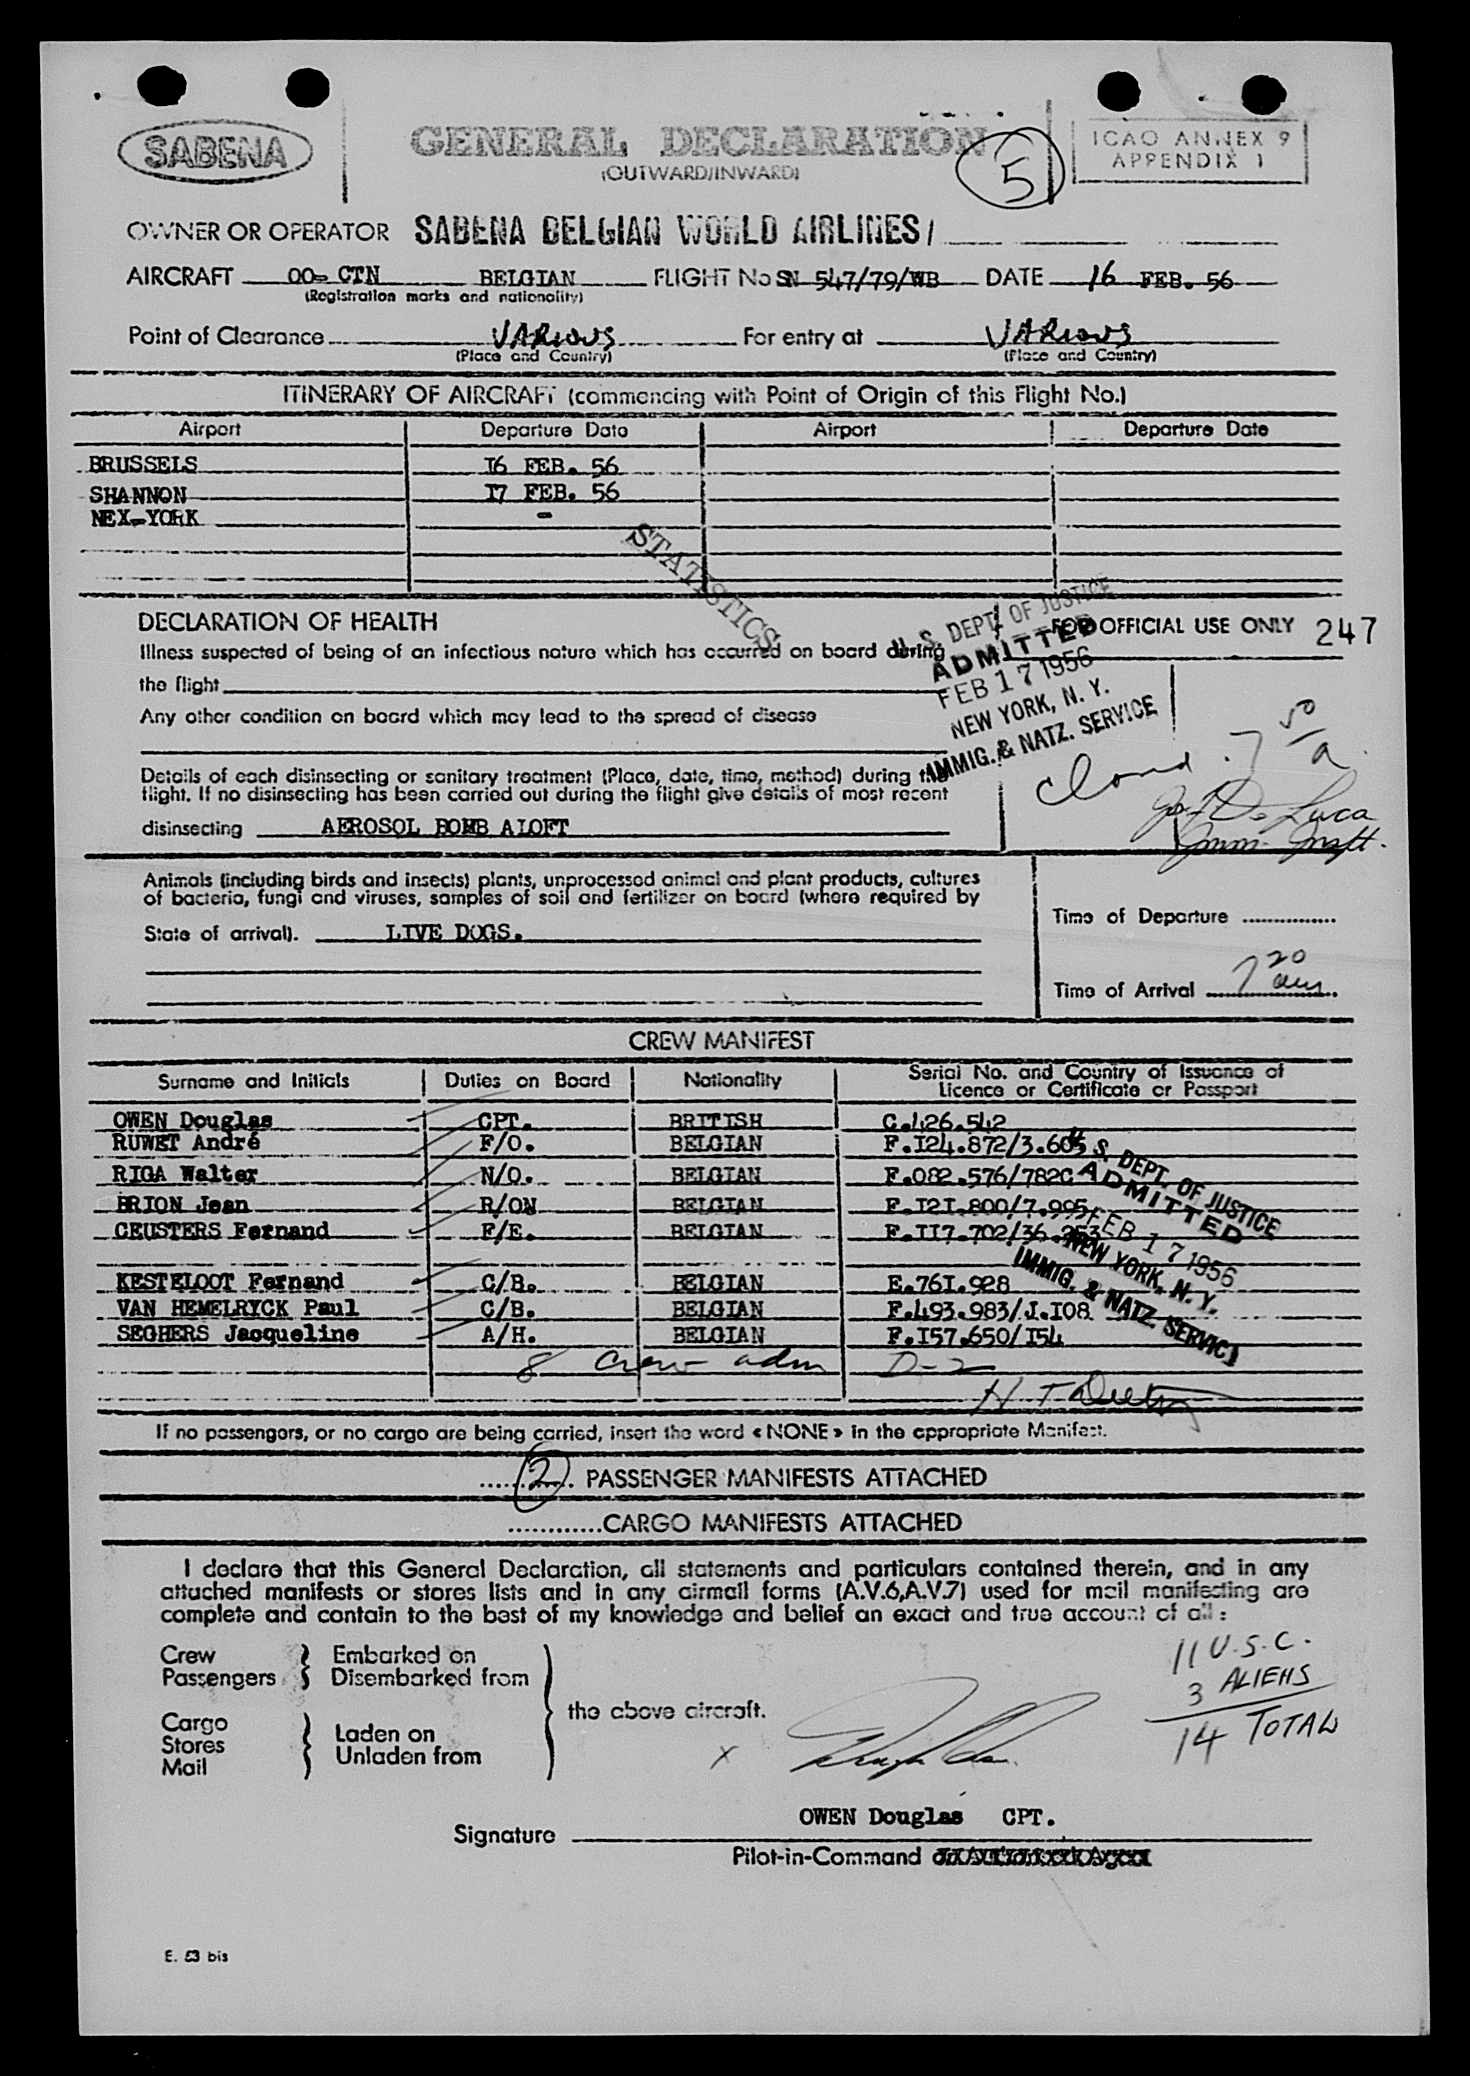 SABENA
GENERAL DECLARATION
(OUTWARD/INWARD)
5
ICAO ANNEX 9
APPENDIX 1
OWNER OR OPERATOR SABENA BELGIAN WORLD AIRLINES/
AIRCRAFT OO-CTN BELGIAN FLIGHT No SN 547/79/WB DATE 16 FEB. 56
(Registration marks and nationality)
Point of Clearance VARIOUS For entry at VARIOUS
(Place and Country) (Place and Country)
ITINERARY OF AIRCRAFT (commencing with Point of Origin of this Flight No.)
Airport Departure Date Airport Departure Date
BRUSSELS I6 FEB. 56
SHANNON I7 FEB. 56
NEX-YORK -
STATISTICS
DECLARATION OF HEALTH
FOR OFFICIAL USE ONLY 247
Illness suspected of being of an infectious nature which has occurred on board during
the flight
U. S. DEPT. OF JUSTICE
ADMITTED
FEB 17 1956
NEW YORK, N. Y.
IMMIG. & NATZ. SERVICE
Any other condition on board which may lead to the spread of disease
Details of each disinsecting or sanitary treatment (Place, date, time, method) during the
flight. If no disinsecting has been carried out during the flight give details of most recent
disinsecting AEROSOL BOMB ALOFT
7 50/a
De Luca
Imm. Inspt.
Animals (including birds and insects) plants, unprocessed animal and plant products, cultures
of bacteria, fungi and viruses, samples of soil and fertilizer on board (where required by
State of arrival). LIVE DOGS.
Time of Departure ...............
Time of Arrival 7 20 am
CREW MANIFEST
Surname and Initials Duties on Board Nationality Serial No. and Country of Issuance of
Licence or Certificate or Passport
OWEN Douglas CPT. BRITISH C.426.542
RUWET André F/O. BELGIAN F.I24.872/3.605
RIGA Walter N/O. BELGIAN F.082.576/782C
BRION Jean R/ON BELGIAN F.I2I.800/7.995
CEUSTERS Fernand F/E. BELGIAN F.II7.702/36.253
KESTELOOT Fernand C/B. BELGIAN E.76I.928
VAN HEMELRYCK Paul C/B. BELGIAN F.493.983/J.I08
SEGHERS Jacqueline A/H. BELGIAN F.I57.650/I54
U. S. DEPT. OF JUSTICE
ADMITTED
FEB 17 1956
NEW YORK, N. Y.
IMMIG. & NATZ. SERVICE
8 Crew adm D-2
If no passengers, or no cargo are being carried, insert the word «NONE» in the appropriate Manifest.
2 PASSENGER MANIFESTS ATTACHED
............CARGO MANIFESTS ATTACHED
I declare that this General Declaration, all statements and particulars contained therein, and in any
attached manifests or stores lists and in any airmail forms (A.V.6,A.V.7) used for mail manifesting are
complete and contain to the best of my knowledge and belief an exact and true account of all :
Crew Embarked on
Passengers Disembarked from
the above aircraft.
Cargo Laden on
Stores Unladen from
Mail
11 U.S.C.
3 ALIENS
14 TOTAL
X
OWEN Douglas CPT.
Signature
Pilot-in-Command
E. 53 bis